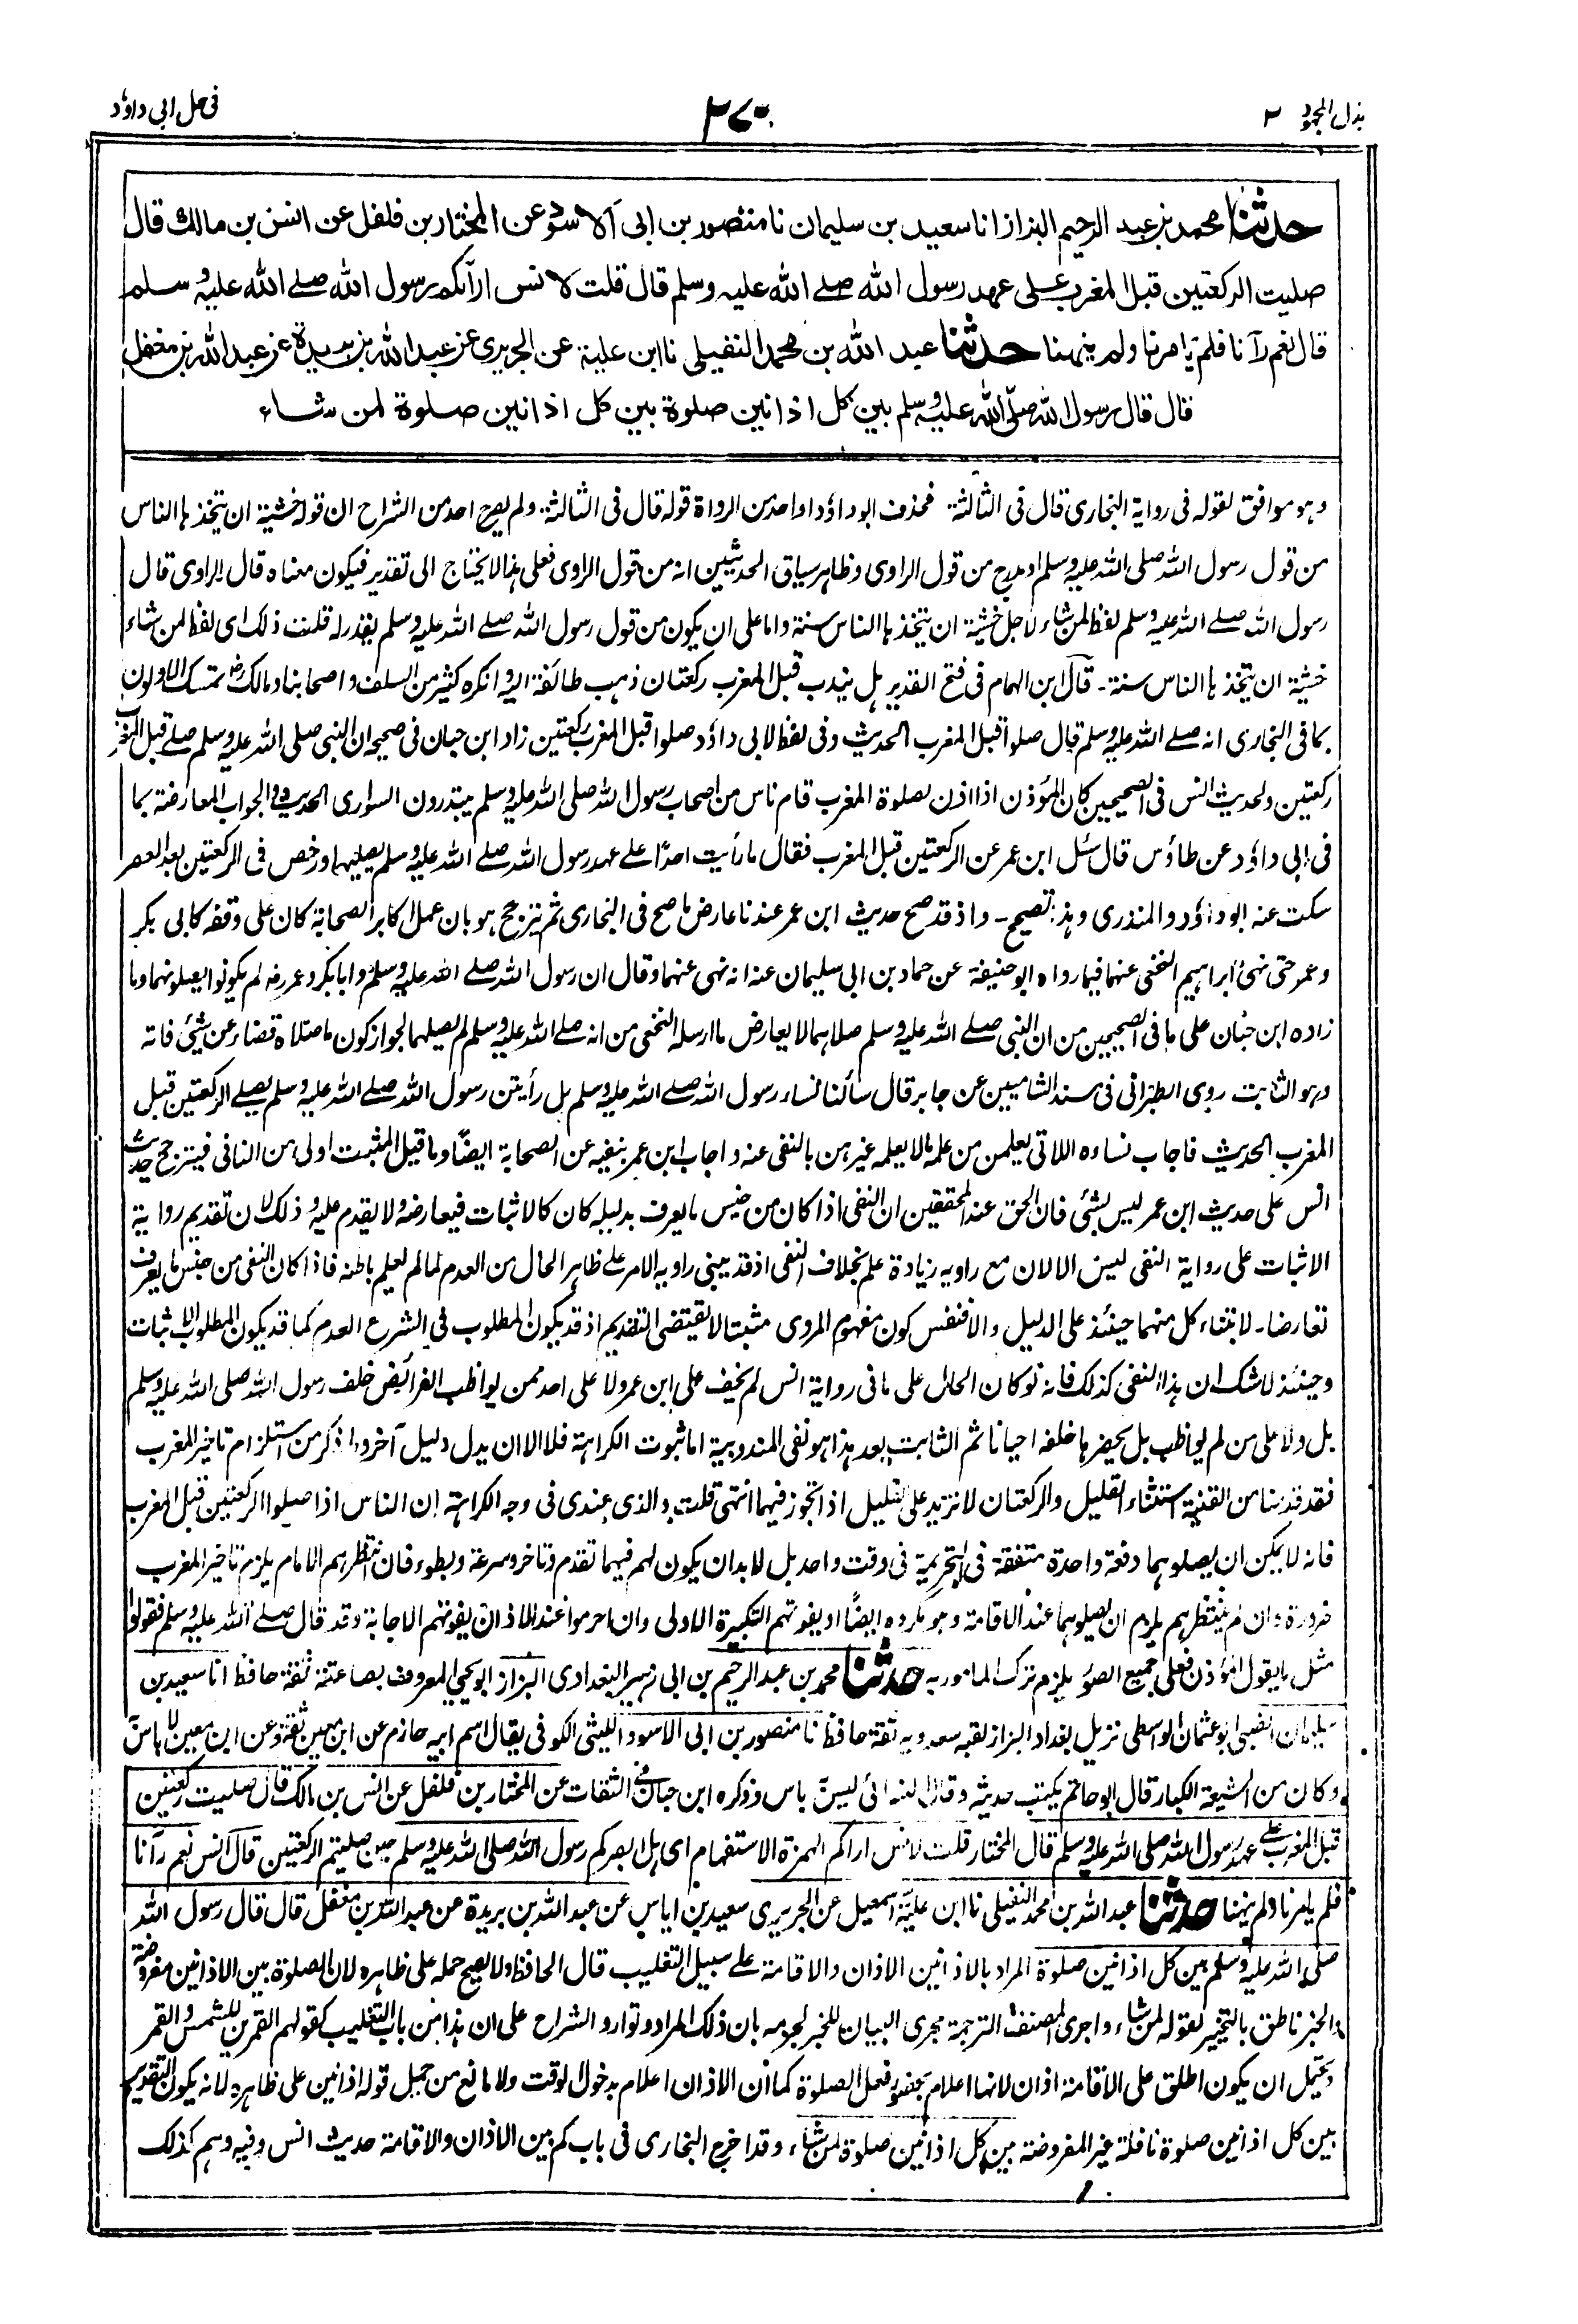 بذل المجهود ٢ ٢٧٠ فی حل ابی داؤد
حدثنا محمد بن عبد الرحیم البزاز انا سعید بن سلیمان نا منصور بن ابی الاسود عن المختار بن فلفل عن انس بن مالك قال
صلیت الرکعتین قبل المغرب علی عهد رسول الله صلے الله علیه وسلم قال قلت لانس ارآکم رسول الله صلے الله علیه وسلم
قال نعم رآنا فلم یامرنا ولم ینهنا حدثنا عبد الله بن محمد النفیلی نا ابن علیة عن الجریری عن عبد الله بن بریدة عن عبد الله بن مغفل
قال قال رسول الله صلّی الله علیه وسلم بین کل اذانین صلوة بین کل اذانین صلوة لمن شاء
وہو موافق لقوله فی روایة البخاری قال فی الثالثة۔ فحذف ابو داؤد او احد من الرواة قوله قال فی الثالثة۔ ولم یصرح احد من الشراح ان قوله خشیة ان یتخذہا الناس
من قول رسول الله صلی الله علیه وسلم او مدرج من قول الراوی وظاہر سیاق الحدیثین انه من قول الراوی فعلی ہذا لا یحتاج الی تقدیر فیکون معناہ قال الراوی قال
رسول الله صلے الله علیه وسلم لفظ لمن شاء لاجل خشیة ان یتخذہا الناس سنة واما علی ان یکون من قول رسول الله صلے الله علیه وسلم یقدر له قلت ذلك ای لفظ لمن شاء
خشیة ان یتخذہا الناس سنة۔ قال ابن الہمام فی فتح القدیر ہل یندب قبل المغرب رکعتان ذہب طائفة الیه وانکرہ کثیر من السلف واصحابنا ومالك رض تمسك الاولون
بما فی البخاری انه صلے الله علیه وسلم قال صلوا قبل المغرب الحدیث وفی لفظ لابی داؤد صلوا قبل المغرب رکعتین زاد ابن حبان فی صحیحه ان النبی صلی الله علیه وسلم صلے قبل المغرب
رکعتین ولحدیث انس فی الصحیحین کان المؤذن اذا اذن لصلوة المغرب قام ناس من اصحاب رسول الله صلی الله علیه وسلم یبتدرون السواری الحدیث والجواب المعارضة بما
فی ابی داؤد عن طاؤس قال سئل ابن عمر عن الرکعتین قبل المغرب فقال ما رأیت احدًا علے عہد رسول الله صلے الله علیه وسلم یصلیہما ورخص فی الرکعتین بعد العصر
سکت عنه ابو داؤد والمنذری وہذا تصحیح۔ واذ قد صح حدیث ابن عمر عندنا عارض ما صح فی البخاری ثم یترجح ہو بان عمل اکابر الصحابة کان علی وقفه کابی بکر
وعمر حتی نہی ابراہیم النخعی عنہما فیما رواہ ابو حنیفة عن حماد بن ابی سلیمان عنه انه نہی عنہما وقال ان رسول الله صلے الله علیه وسلم وابا بکر وعمر رض لم یکونوا یصلونہما وما
زادہ ابن حبان علی ما فی الصحیحین من ان النبی صلے الله علیه وسلم صلاہما لا یعارض ما ارسله النخعی من انه صلے الله علیه وسلم لم یصلہما لجواز کون ما صلاہ قضاء عن شیٔ فاته
وہو الثابت روی الطبرانی فی سند الشامیین عن جابر قال سألنا نساء رسول الله صلے الله علیه وسلم ہل رأیتن رسول الله صلے الله علیه وسلم یصلے الرکعتین قبل
المغرب الحدیث فاجاب نساءہ اللاتی یعلمن من علمه ما لا یعلمه غیرہن بالنفی عنه واجاب ابن عمر بنفیه عن الصحابة ایضًا وما قیل المثبت اولی من النافی فیترجح حدیث
انس علی حدیث ابن عمر لیس بشئی فان الحق عند المحققین ان النفی اذا کان من جنس ما یعرف بدلیله کان کالاثبات فیعارضه ولا یقدم علیه وذلك لان تقدیم روایة
الاثبات علی روایة النفی لیس الا لان مع راویه زیادة علم بخلاف النفی اذ قد یبنی راویه الامر علے ظاہر الحال من العدم لما لم یعلم باطنه فاذا کان النفی من جنس ما یعرف
تعارضا۔ لابتناء کل منہما حینئذ علی الدلیل والا فنفس کون مفہوم المروی مثبتا لا یقتضی التقدیم اذ قد یکون المطلوب فی الشرع العدم کما قد یکون المطلوب الاثبات
وحینئذ لا شك ان ہذا النفی کذلك فانه لو کان الحال علی ما فی روایة انس لم یخف علی ابن عمر ولا علی احد ممن یواظب الفرائض خلف رسول الله صلی الله علیه وسلم
بل ولا علی من لم یواظب بل یحضرہا خلفه احیانا ثم الثابت بعد ہذا ہو نفی المندوبیة اما ثبوت الکراہة فلا الا ان یدل دلیل آخر وما ذکر من استلزام تاخیر المغرب
فقد قدمنا من القنیة استثناء القلیل والرکعتان لا تزید علی القلیل اذا تجوز فیہما انتہی قلت والذی عندی فی وجه الکراہة ان الناس اذا صلوا الرکعتین قبل المغرب
فانه لا یمکن ان یصلوہما دفعة واحدة متفقة فی التحریمة فی وقت واحد بل لا بد ان یکون لہم فیہما تقدم وتاخر وسرعة وبطوء فان انتظرہم الامام یلزم تاخیر المغرب
ضرورة وان لم ینتظرہم یلزم ان یصلوہما عند الاقامة وہو مکروہ ایضًا او یفوتہم التکبیرة الاولی وان احرموا عند الاذان یفوتہم الاجابة وقد قال صلے الله علیه وسلم فقولوا
مثل ما یقول المؤذن فعلی جمیع الصور یلزم ترك المامور به حدثنا محمد بن عبد الرحیم بن ابی زہیر البغدادی البزاز ابو یحیی المعروف بصاعقة ثقة حافظ انا سعید بن
سلیمان الضبی ابو عثمان الواسطی نزیل بغداد البزاز لقبه سعدویه ثقة حافظ نا منصور بن ابی الاسود اللیثی الکوفی یقال اسم ابیه حازم عن ابن معین ثقة وعن ابن معین لا باس به
وکان من الشیعة الکبار قال ابو حاتم یکتب حدیثه وقال النسائی لیس به باس وذکرہ ابن حبان فی الثقات عن المختار بن فلفل عن انس بن مالك قال صلیت رکعتین
قبل المغرب علی عہد رسول الله صلی الله علیه وسلم قال المختار قلت لانس اراکم الہمزة الاستفہام ای ہل ابصرکم رسول الله صلی الله علیه وسلم حین صلیتم الرکعتین قال انس نعم رآنا
فلم یامرنا ولم ینہنا حدثنا عبد الله بن محمد النفیلی نا ابن علیّة اسمعیل عن الجریری سعید بن ایاس عن عبد الله بن بریدة عن عبد الله بن مغفل قال قال رسول الله
صلی الله علیه وسلم بین کل اذانین صلوة المراد بالاذانین الاذان والاقامة علے سبیل التغلیب قال الحافظ ولا یصح حمله علی ظاہرہ لان الصلوة بین الاذانین مفروضة
والخبر ناطق بالتخییر لقوله لمن شاء واجری المصنف الترجمة مجری البیان للخبر لجزمه بان ذلك المراد وتوارد الشراح علی ان ہذا من باب التغلیب کقولہم القمرین للشمس والقمر
ویحتمل ان یکون اطلق علی الاقامة اذان لانہا اعلام بحضور فعل الصلوة کما ان الاذان اعلام بدخول الوقت ولا مانع من حمل قوله اذانین علی ظاہرہ لانه یکون التقدیر
بین کل اذانین صلوة نافلة غیر المفروضة بین کل اذانین صلوة لمن شاء وقد اخرج البخاری فی باب کم بین الاذان والاقامة حدیث انس وفیه وہم کذلك